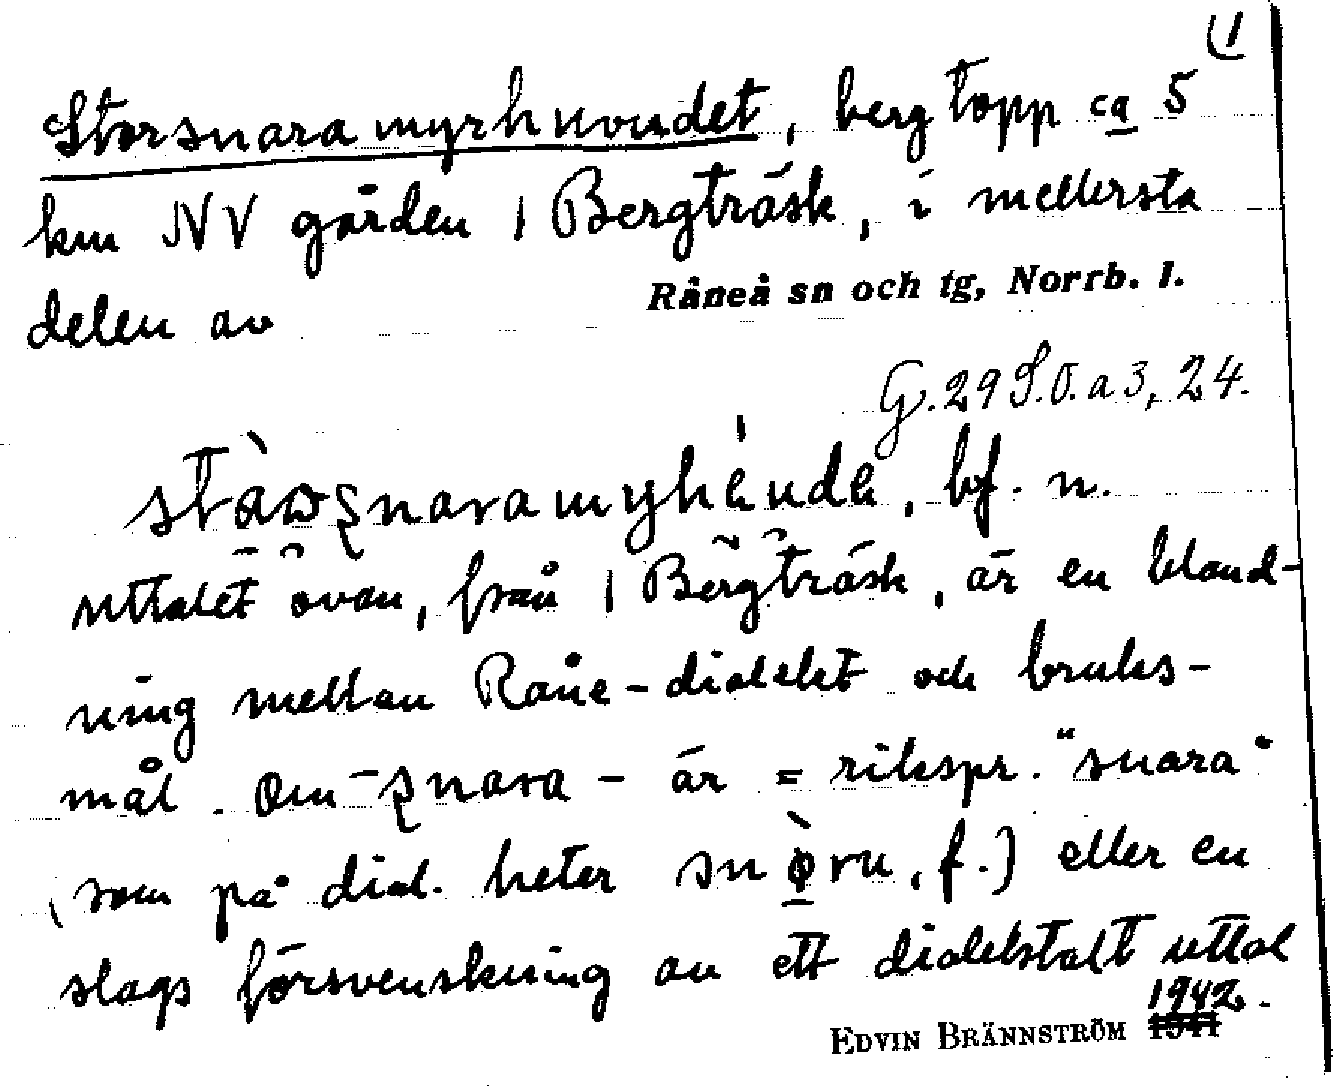 1)
Storsnaramyrhuvudet, bergtopp ca 5
km NV gården 1 Bergträsk, i mellersta
delen av
Råneå sn och tg, Norrb. l.
G. 29 S.O. a 3, 24.
bf. n.
uttalet ovan, från 1 Bergträsk, är en bland-
ning mellan Råne-dialekt och bruks-
mål. Om -snara- är = rikspr. "snara"
(som på dial. heter snøru, f.) eller en
slags försvenskning av ett dialektalt uttal
EDVIN BRÄNNSTRÖM 1942.